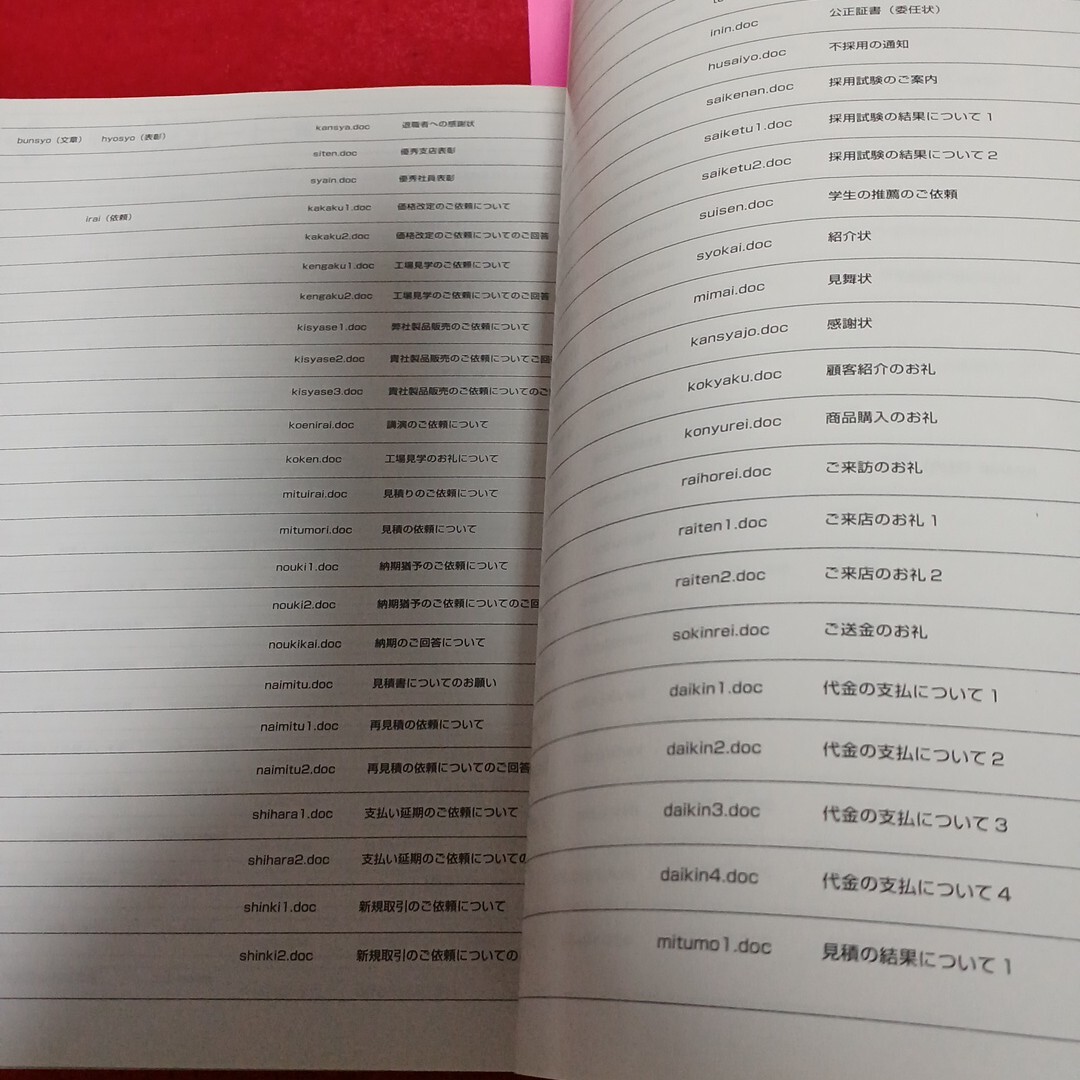 bunsyo（文章） hyosyo（表彰） kansya.doc 退職者への感謝状
siten.doc 優秀支店表彰
syain.doc 優秀社員表彰
irai（依頼） kakaku1.doc 価格改定のご依頼について
kakaku2.doc 価格改定のご依頼についてのご回答
kengaku1.doc 工場見学のご依頼について
kengaku2.doc 工場見学のご依頼についてのご回答
kisyase1.doc 弊社製品販売のご依頼について
kisyase2.doc 貴社製品販売のご依頼についてご回
kisyase3.doc 貴社製品販売のご依頼についてのご
koenirai.doc 講演のご依頼について
koken.doc 工場見学のお礼について
mituirai.doc 見積りのご依頼について
mitumori.doc 見積の依頼について
nouki1.doc 納期猶予のご依頼について
nouki2.doc 納期猶予のご依頼についてのご回
noukikai.doc 納期のご回答について
naimitu.doc 見積書についてのお願い
naimitu1.doc 再見積の依頼について
naimitu2.doc 再見積の依頼についてのご回答
shihara1.doc 支払い延期のご依頼について
shihara2.doc 支払い延期のご依頼についての
shinki1.doc 新規取引のご依頼について
shinki2.doc 新規取引のご依頼についての
inin.doc 公正証書（委任状）
husaiyo.doc 不採用の通知
saikenan.doc 採用試験のご案内
saiketu1.doc 採用試験の結果について1
saiketu2.doc 採用試験の結果について2
suisen.doc 学生の推薦のご依頼
syokai.doc 紹介状
mimai.doc 見舞状
kansyajo.doc 感謝状
kokyaku.doc 顧客紹介のお礼
konyurei.doc 商品購入のお礼
raihorei.doc ご来訪のお礼
raiten1.doc ご来店のお礼1
raiten2.doc ご来店のお礼2
sokinrei.doc ご送金のお礼
daikin1.doc 代金の支払について1
daikin2.doc 代金の支払について2
daikin3.doc 代金の支払について3
daikin4.doc 代金の支払について4
mitumo1.doc 見積の結果について1